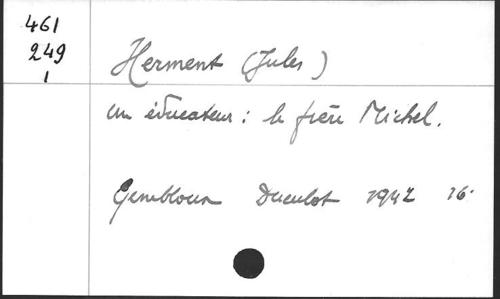 461
249
1
Herment (Jules)
Un éducateur : le frère Michel.
Gembloux Duculot 1942 16°